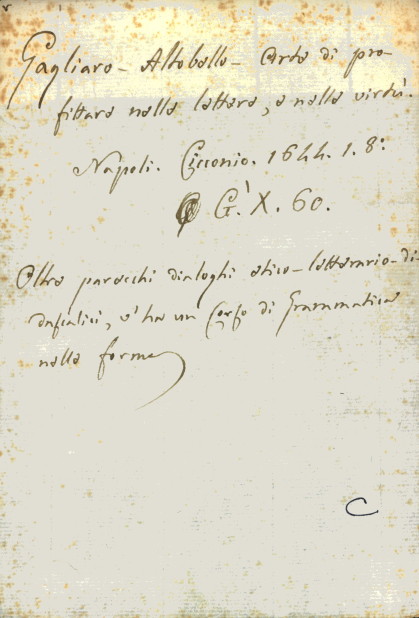 Gagliaro - Altobello - Arte di pro-
fittare nelle lettere, e nelle virtù.
Napoli. Cicconio. 1644. 1. 8:
G. X. 60.
Oltre parecchi dialoghi etico-letterario-di-
dascalici, v'ha un Corso di Grammatica
nelle forme
C